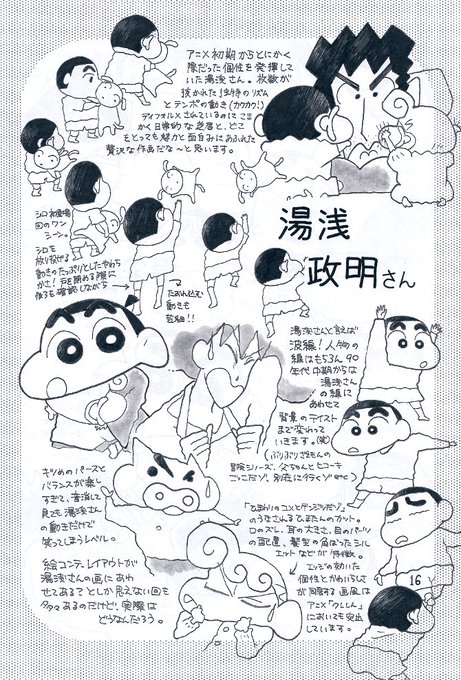 アニメ初期からとにかく
際だった個性を発揮して
いた湯浅さん。枚数が
抜かれた独特のリズム
とテンポの動き(カクカク!)
ディフォルメされているのにこま
かく日常的な芝居と、どこ
をとっても魅力と面白みにあふれた
贅沢な作画だな〜と思います。
湯浅
政明さん
シロ初登場
回のワン
シーン。
シロを
放り投げる
動きのたっぷりとしたやわら
かさ!戸を閉める際に
後ろを確認しながら
→
たおれ込む
動きも
芸細!!
湯浅さんと言えば
波線!人物の
線はもちろん90
年代中期からは
湯浅さん
の線に
あわせて
背景のテイスト
まで変わって
いきます。(笑)
(ぶりぶりざえもんの
冒険シリーズ、父ちゃんとヒコーキ
ごっこだゾ、別荘に行くゾetc)
キツめのパースと
バランスが楽し
すぎて、音消して
見ても湯浅さん
の動きだけで
笑ってしまうレベル。
絵コンテ、レイアウトが
湯浅さんの画にあわ
せてある?としか思えない回も
多々あるのだけど、実際は
どうなんだろう。
「ひまわりのコンとゲンジツだゾ」
のうなされるひまたんのカット。
口のズレ、耳の大きさ、目のパーツ
の配置、髪型の角ばったシル
エットなどが特徴。
エッジの効いた
個性とかわいらしさ
が同居する画風は
アニメ「クレしん」
においても突出
しています。
16